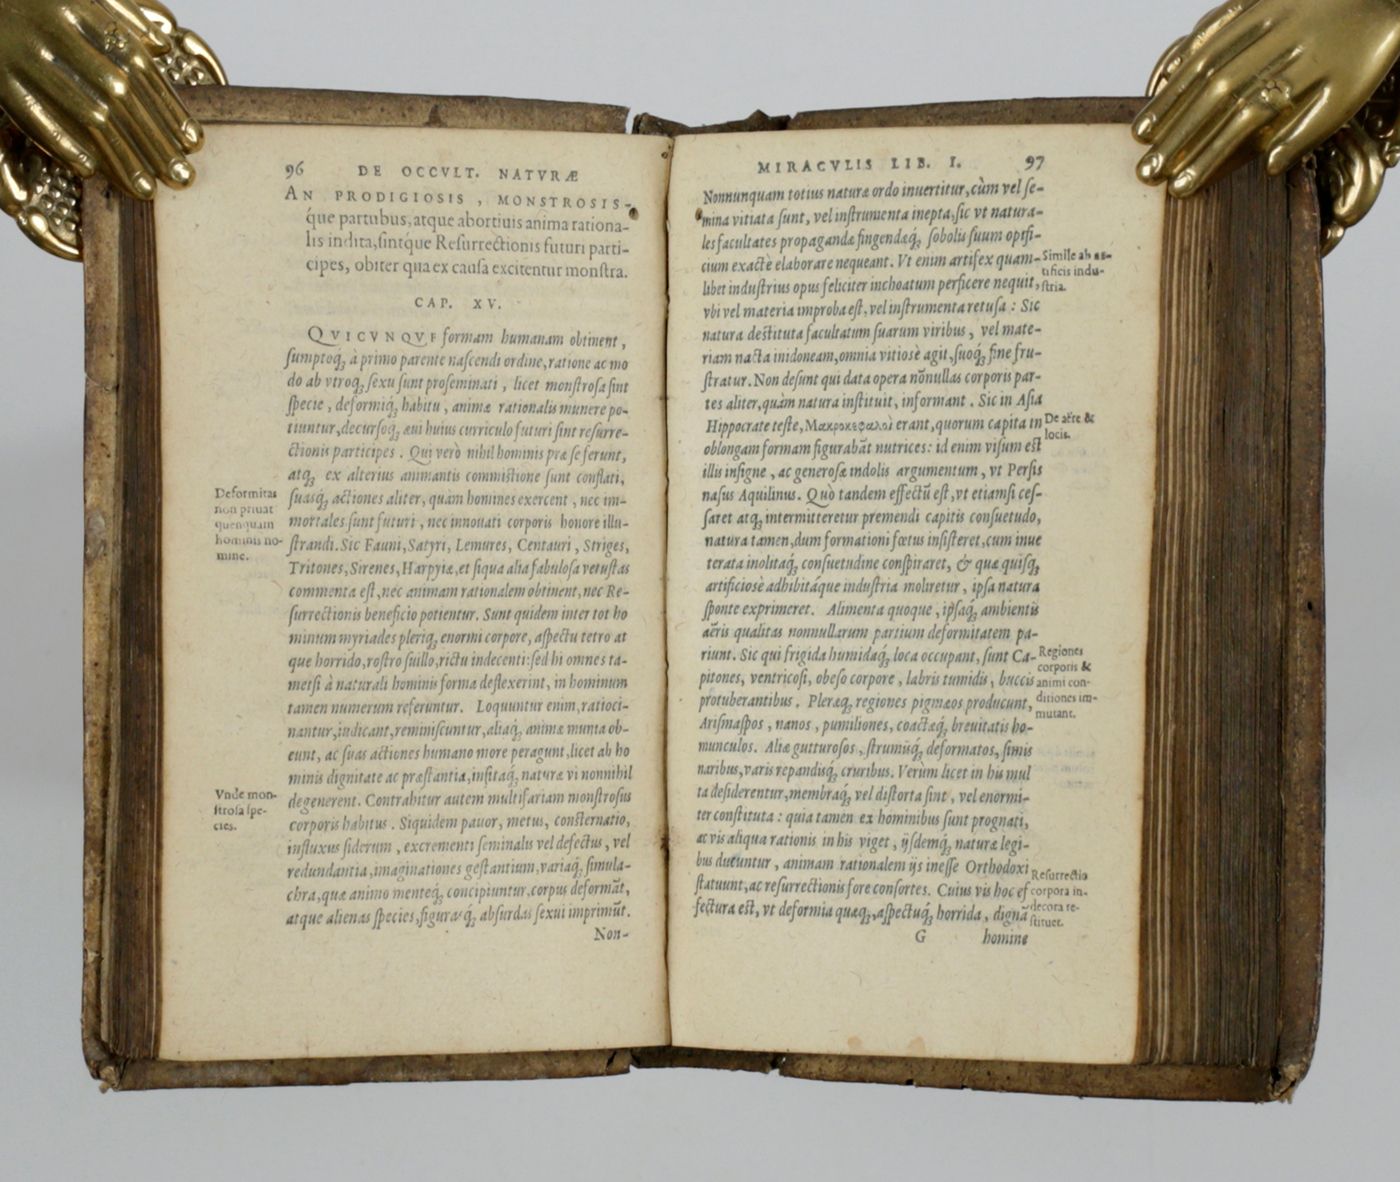 96 DE OCCVLT. NATVRÆ
AN PRODIGIOSIS, MONSTROSIS-
q́ue partubus, atque abortiuis anima rationa-
lis indita, sintq́ue Resurrectionis futuri parti-
cipes, obiter qua ex causa excitentur monstra.
CAP. XV.
QVICVNQVE formam humanam obtinent,
sumptoq́; à primo parente nascendi ordine, ratione ac mo
do ab vtroq; sexu sunt proseminati, licet monstrosa sint
specie, deformiq́; habitu, animæ rationalis munere po-
tiuntur, decursoq́; æui huius curriculo futuri sint resurre-
ctionis participes. Qui verò nihil hominis præ se ferunt,
atq; ex alterius animantis commistione sunt conflati,
suasq́; actiones aliter, quàm homines exercent, nec im-
mortales sunt futuri, nec innouati corporis honore illu-
strandi. Sic Fauni, Satyri, Lemures, Centauri, Striges,
Tritones, Sirenes, Harpyiæ, et siqua alia fabulosa vetustas
commenta est, nec animam rationalem obtinent, nec Re-
surrectionis beneficio potientur. Sunt quidem inter tot ho
minum myriades pleriq; enormi corpore, aspectu tetro at
que horrido, rostro suillo, rictu indecenti: sed hi omnes ta-
metsi à naturali hominis forma deflexerint, in hominum
tamen numerum referuntur. Loquuntur enim, ratioci-
nantur, iudicant, reminiscuntur, aliaq́; animæ munia ob-
eunt, ac suas actiones humano more peragunt, licet ab ho
minis dignitate ac præstantia, insitaq́; naturæ vi nonnihil
degenerent. Contrahitur autem multifariam monstrosus
corporis habitus. Siquidem pauor, metus, consternatio,
influxus siderum, excrementi seminalis vel defectus, vel
redundantia, imaginationes gestantium, variaq́; simula-
chra, quæ animo menteq́; concipiuntur, corpus deformãt,
atque alienas species, figurasq́; absurdas sexui imprimũt.
Non-
Deformitas
non priuat
quenquam
hominis no-
mine.
Vnde mon-
strosa spe-
cies.
MIRACVLIS LIB. I. 97
Nonnunquam totius naturæ ordo inuertitur, cùm vel se-
mina vitiata sunt, vel instrumenta inepta, sic vt natura-
les facultates propagandæ fingendæq́; sobolis suum opifi-
cium exactè elaborare nequeant. Vt enim artifex quam-
libet industrius opus feliciter inchoatum perficere nequit,
vbi vel materia improba est, vel instrumenta retusa: Sic
natura destituta facultatum suarum viribus, vel mate-
riam nacta inidoneam, omnia vitiosè agit, suoq́; fine fru-
stratur. Non desunt qui data opera nõnullas corporis par-
tes aliter, quàm natura instituit, informant. Sic in Asia
Hippocrate teste, Μακροκεφαλοὶ erant, quorum capita in
oblongam formam figurabãt nutrices: id enim visum est
illis insigne, ac generosæ indolis argumentum, vt Persis
nasus Aquilinus. Quò tandem effectũ est, vt etiamsi ces-
saret atq; intermitteretur premendi capitis consuetudo,
natura tamen, dum formationi fœtus insisteret, cum inue
terata inolitaq́; consuetudine conspiraret, & quæ quisq;
artificiosè adhibitáque industria moliretur, ipsa natura
sponte exprimeret. Alimenta quoque, ipsaq́; ambientis
aëris qualitas nonnullarum partium deformitatem pa-
riunt. Sic qui frigida humidaq́; loca occupant, sunt Ca-
pitones, ventricosi, obeso corpore, labris tumidis, buccis
protuberantibus. Pleræq; regiones pigmæos producunt,
Arismaspos, nanos, pumiliones, coactæq́; breuitatis ho-
munculos. Aliæ gutturosos, strumisq́; deformatos, simis
naribus, varis repandisq́; cruribus. Verùm licet in his mul
ta desiderentur, membraq́; vel distorta sint, vel enormi-
ter constituta: quia tamen ex hominibus sunt prognati,
ac vis aliqua rationis in his viget, ijsdemq́; naturæ legi-
bus ducuntur, animam rationalem ijs inesse Orthodoxi
statuunt, ac resurrectionis fore consortes. Cuius vis hoc ef
fectura est, vt deformia quæq;, aspectuq́; horrida, dignã
G homine
Simile ab ar-
tificis indu-
stria.
De aëre &
locis.
Regiones
corporis &
animi con-
ditiones im-
mutant.
Resurrectio
corpora in-
decora re-
stituet.